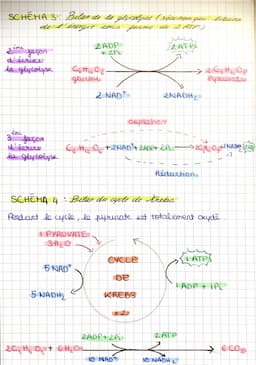 SCHÉMA 3 : Bilan de la glycolyse (
de l'énergie sous forme de 2 ATP)
2ème façon
d'écrire
la glycolyse
2ADP
+ 2Pi
2ATP
C6H12O6
glucose
Pyruvate
2 NAD+
2NADH2
oxydation
3ème façon
d'écrire
la glycolyse
C6H12O6 + 2NAD+ + 2ADP + 2Pi
Réduction
SCHÉMA 4 : Bilan du cycle de Krebs
Pendant le cycle, le pyruvate est totalement oxydé.
1 PYRUVATE
3H2O
CYCLE
DE
KREBS
×2
5 NAD+
5 NADH2
1 ATP
1 ADP + 1Pi
2ADP + 2Pi
2ATP
+ 6H2O
6 CO2
10 NAD+
10 NADH2